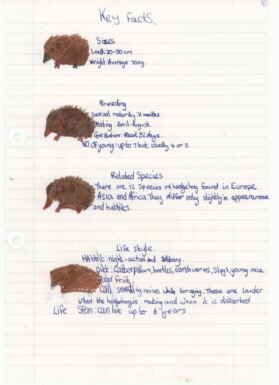 Key Facts
Sizes
Length 20-30 cm
Weight Average 700g.
Breeding
Sexual maturity 11 months
Mating April-August.
Gestation About 32 days.
NO of young up to 7 but usually 4 or 5.
Related Species
There are 15 Species of hedgehog found in Europe
Asia and Africa They differ only slightly in appearance
and habbits.
Life style
Habbits: night-active and solitary.
Diet: Caterpillars, beetles, earthworms, slugs, young mice
and fruit
Call: snuffling noises while foraging. These are louder
when the hedgehogs are mating and when it is disturbed
Life Span: can live up to 6 years